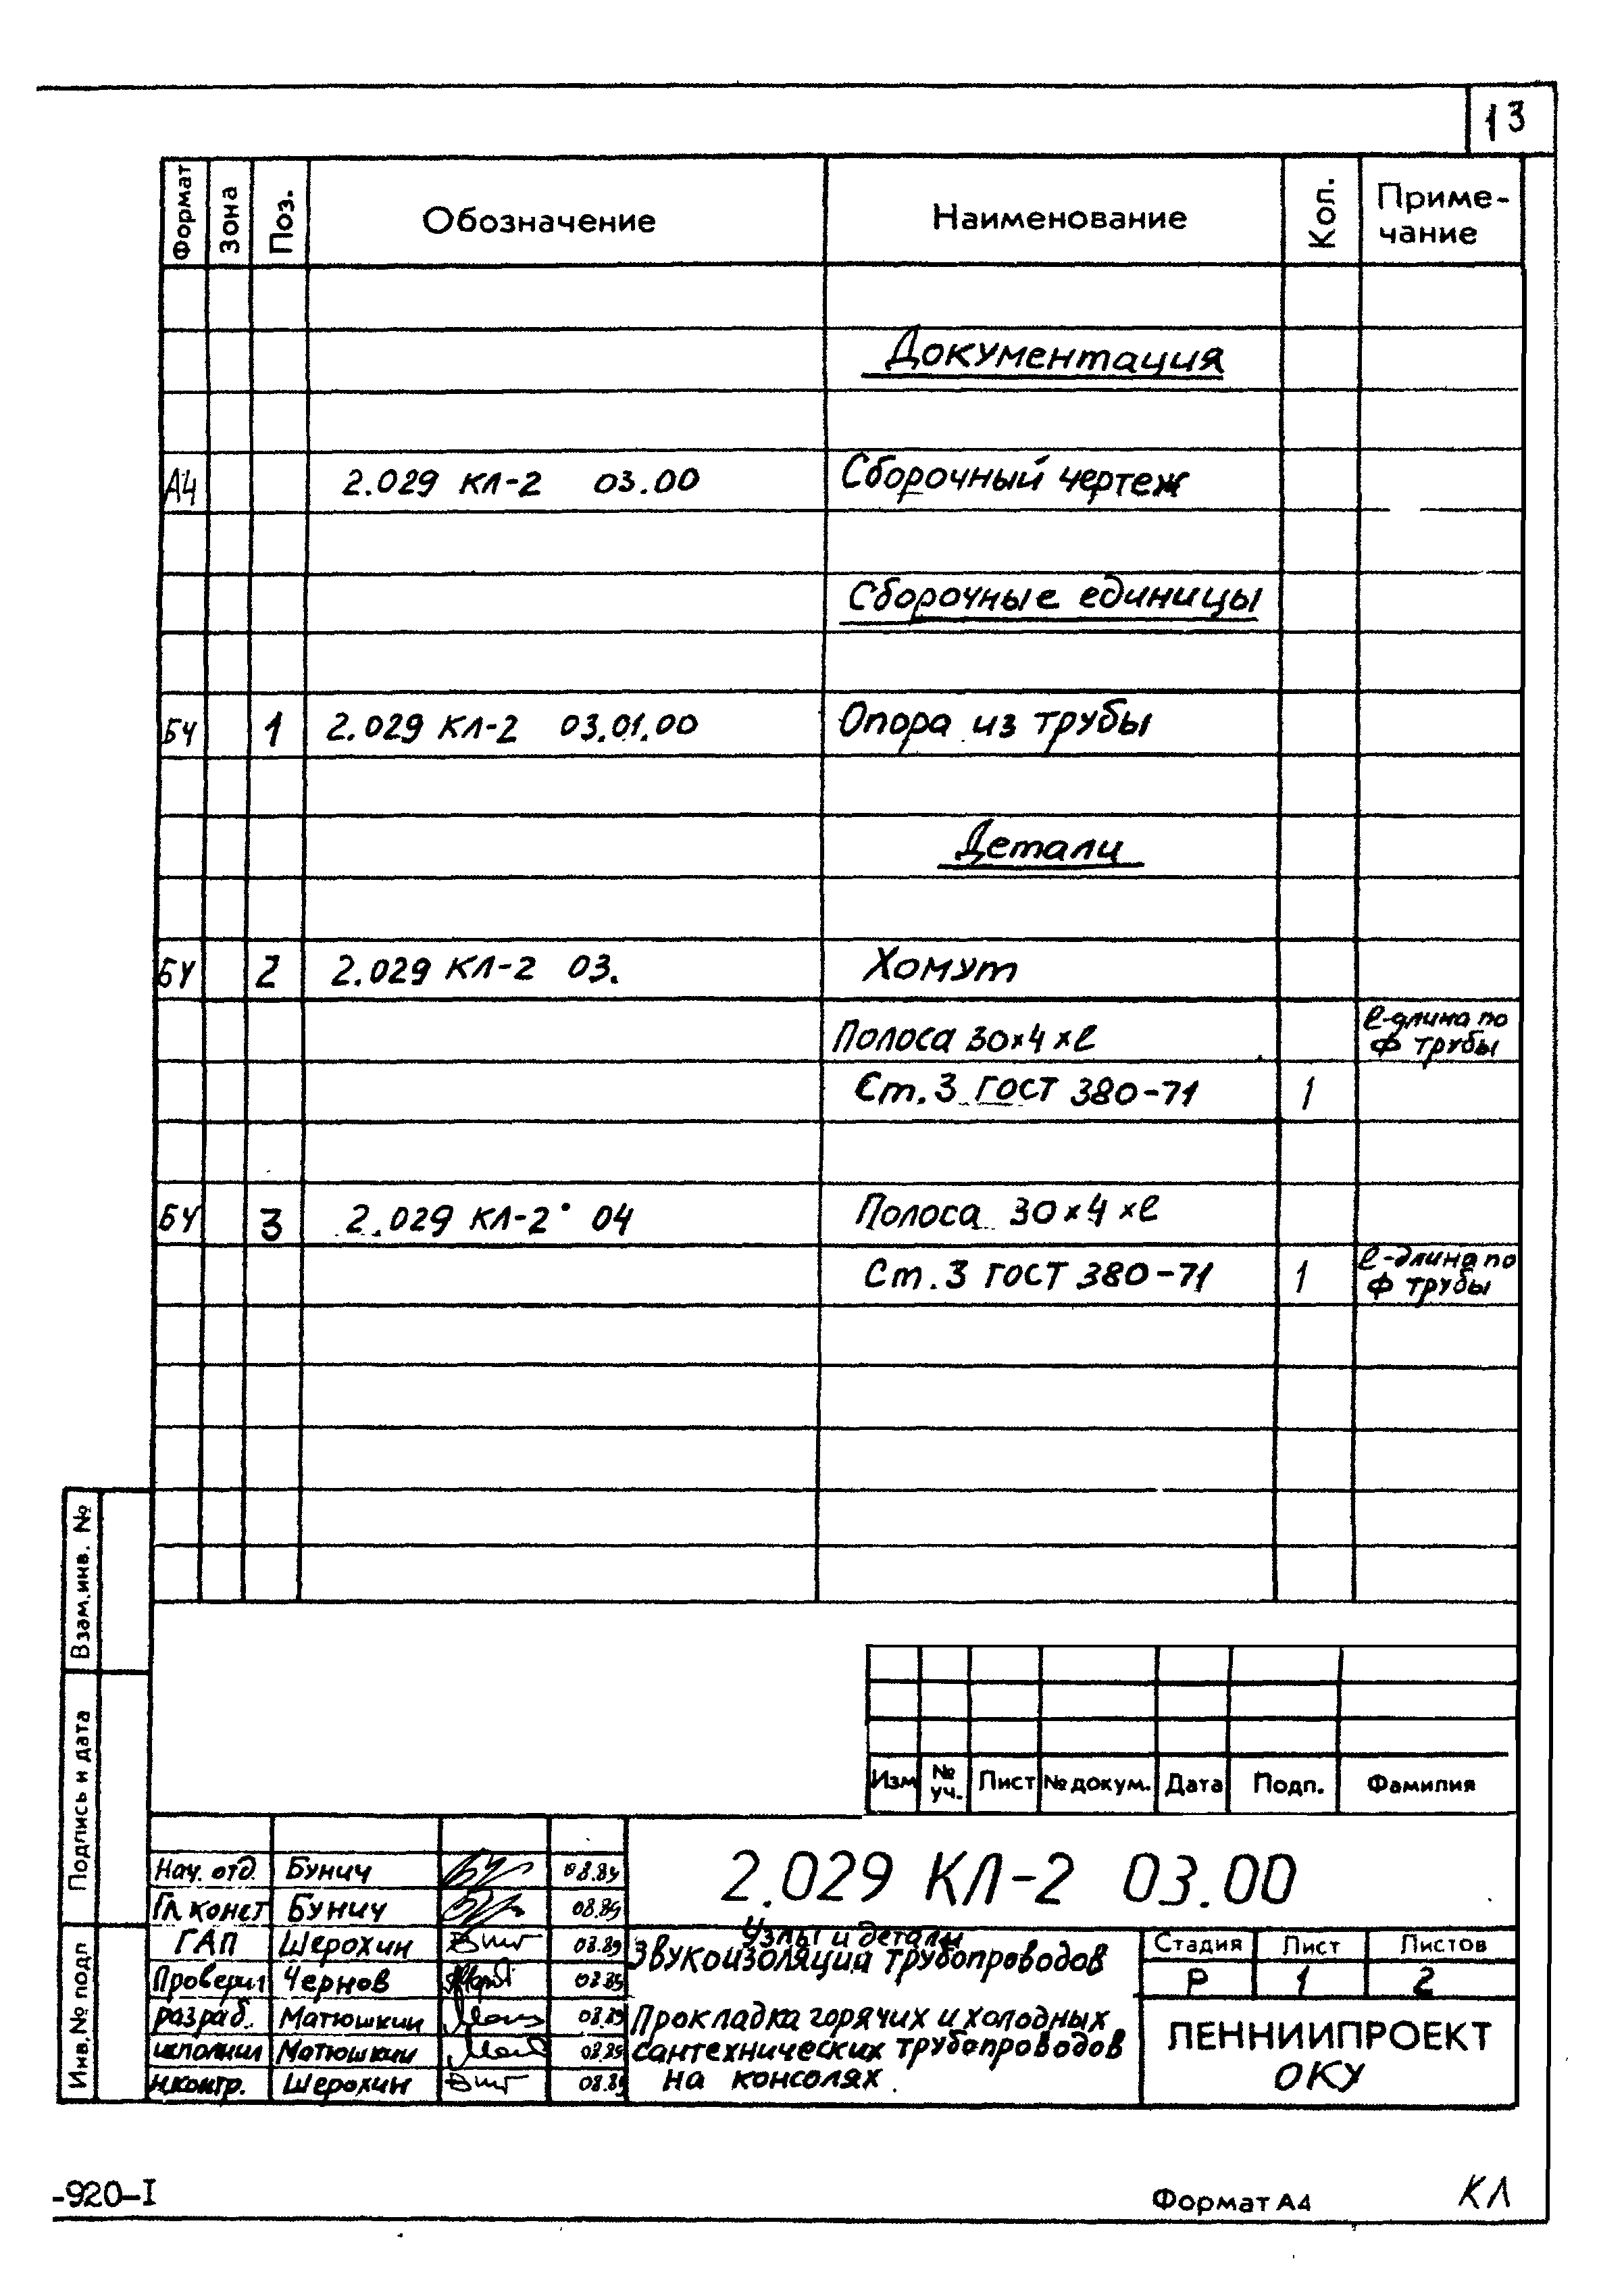 13
Формат Зона Поз. Обозначение Наименование Кол. Приме-
чание
Документация
А4 2.029 КЛ-2 03.00 Сборочный чертеж
Сборочные единицы
БЧ 1 2.029 КЛ-2 03.01.00 Опора из трубы
Детали
БЧ 2 2.029 КЛ-2 03. Хомут
Полоса 30×4×ℓ ℓ-длина по
ф трубы
Ст.3 ГОСТ 380-71 1
БЧ 3 2.029 КЛ-2 04 Полоса 30×4×ℓ
Ст.3 ГОСТ 380-71 1 ℓ-длина по
ф трубы
Взам.инв. №
Подпись и дата
Инв.№ подл
Изм № уч. Лист № докум. Дата Подп. Фамилия
Нач. отд. Бунич 08.89
Гл. конст Бунич 08.89
ГАП Шерохин 08.89
Проверил Чернов 08.89
разраб. Матюшкин 08.89
исполнил Матюшкин 08.89
н.контр. Шерохин 08.89
2.029 КЛ-2 03.00
Узлы и детали
звукоизоляции трубопроводов
Прокладка горячих и холодных
сантехнических трубопроводов
на консолях.
Стадия Лист Листов
Р 1 2
ЛЕННИИПРОЕКТ
ОКУ
-920-I
Формат А4
КЛ